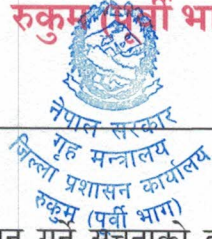 रुकुम (पूर्वी भ
नेपाल सरकार
गृह मन्त्रालय
जिल्ला प्रशासन कार्यालय
रुकुम (पुर्वी भाग)